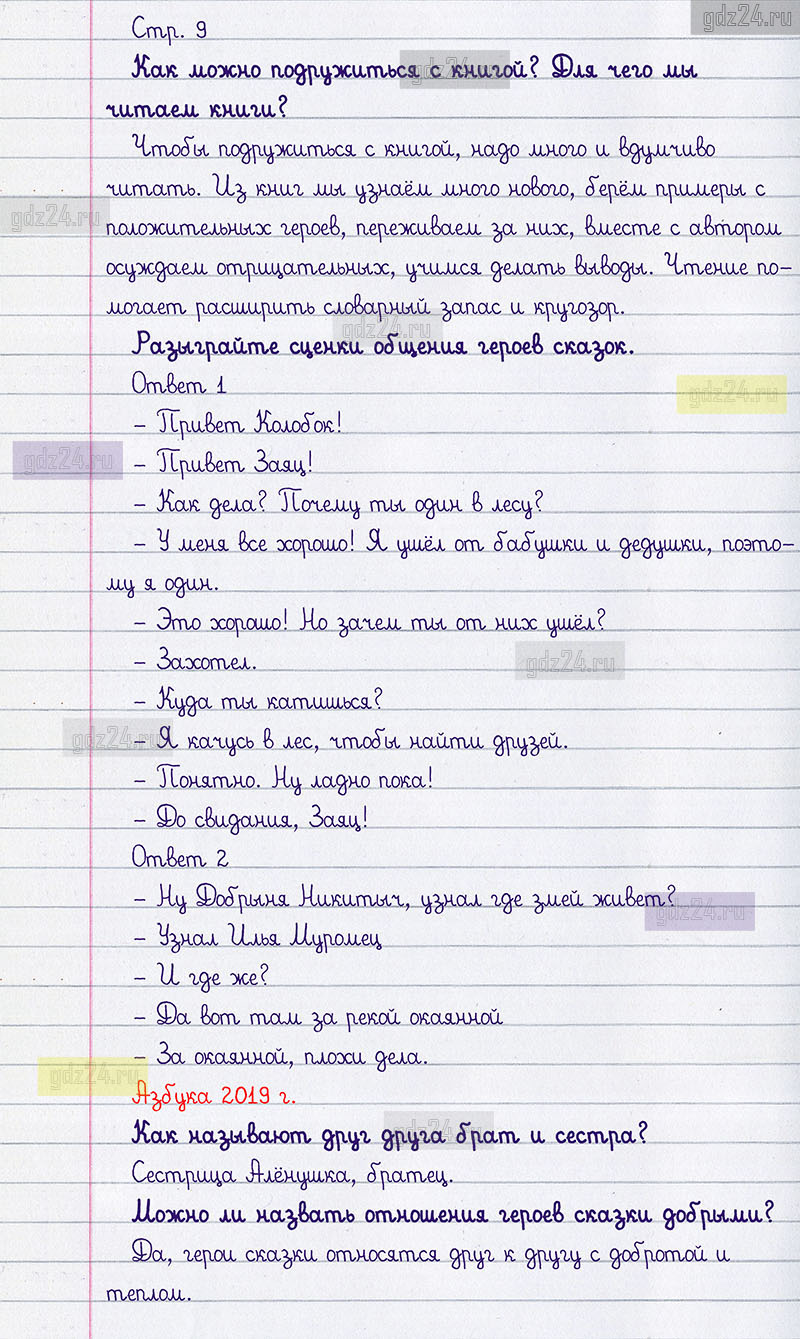 gdz24.ru
Стр. 9
Как можно подружиться с книгой? Для чего мы
gdz24.ru
читаем книги?
Чтобы подружиться с книгой, надо много и вдумчиво
читать. Из книг мы узнаём много нового, берём примеры с
gdz24.ru
положительных героев, переживаем за них, вместе с автором
осуждаем отрицательных, учимся делать выводы. Чтение по-
могает расширить словарный запас и кругозор.
gdz24.ru
Разыграйте сценки общения героев сказок.
Ответ 1
gdz24.ru
– Привет Колобок!
– Привет Заяц!
gdz24.ru
– Как дела? Почему ты один в лесу?
– У меня все хорошо! Я ушёл от бабушки и дедушки, поэто-
му я один.
– Это хорошо! Но зачем ты от них ушёл?
– Захотел.
gdz24.ru
– Куда ты катишься?
– Я качусь в лес, чтобы найти друзей.
gdz24.ru
– Понятно. Ну ладно пока!
– До свидания, Заяц!
Ответ 2
– Ну Добрыня Никитыч, узнал где змей живет?
gdz24.ru
– Узнал Илья Муромец
– И где же?
– Да вот там за рекой окаянной
– За окаянной, плохи дела.
gdz24.ru
Азбука 2019 г.
Как называют друг друга брат и сестра?
gdz24.ru
Сестрица Алёнушка, братец.
Можно ли назвать отношения героев сказки добрыми?
Да, герои сказки относятся друг к другу с добротой и
теплом.